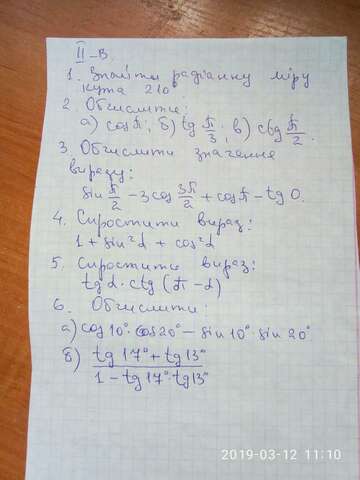 II-В.
1. Знайти радіанну міру
кута 210°
2. Обчислити:
а) cos π; б) tg π/3; в) ctg π/2.
3. Обчислити значення
виразу:
sin π/2 - 3cos 3π/2 + cos π - tg 0.
4. Спростити вираз:
1 + sin²α + cos²α
5. Спростити вираз:
tg α · ctg (π - α)
6. Обчислити:
а) cos 10° · cos 20° - sin 10° · sin 20°
б) tg 17° + tg 13°
1 - tg 17° · tg 13°
2019-03-12 11:10